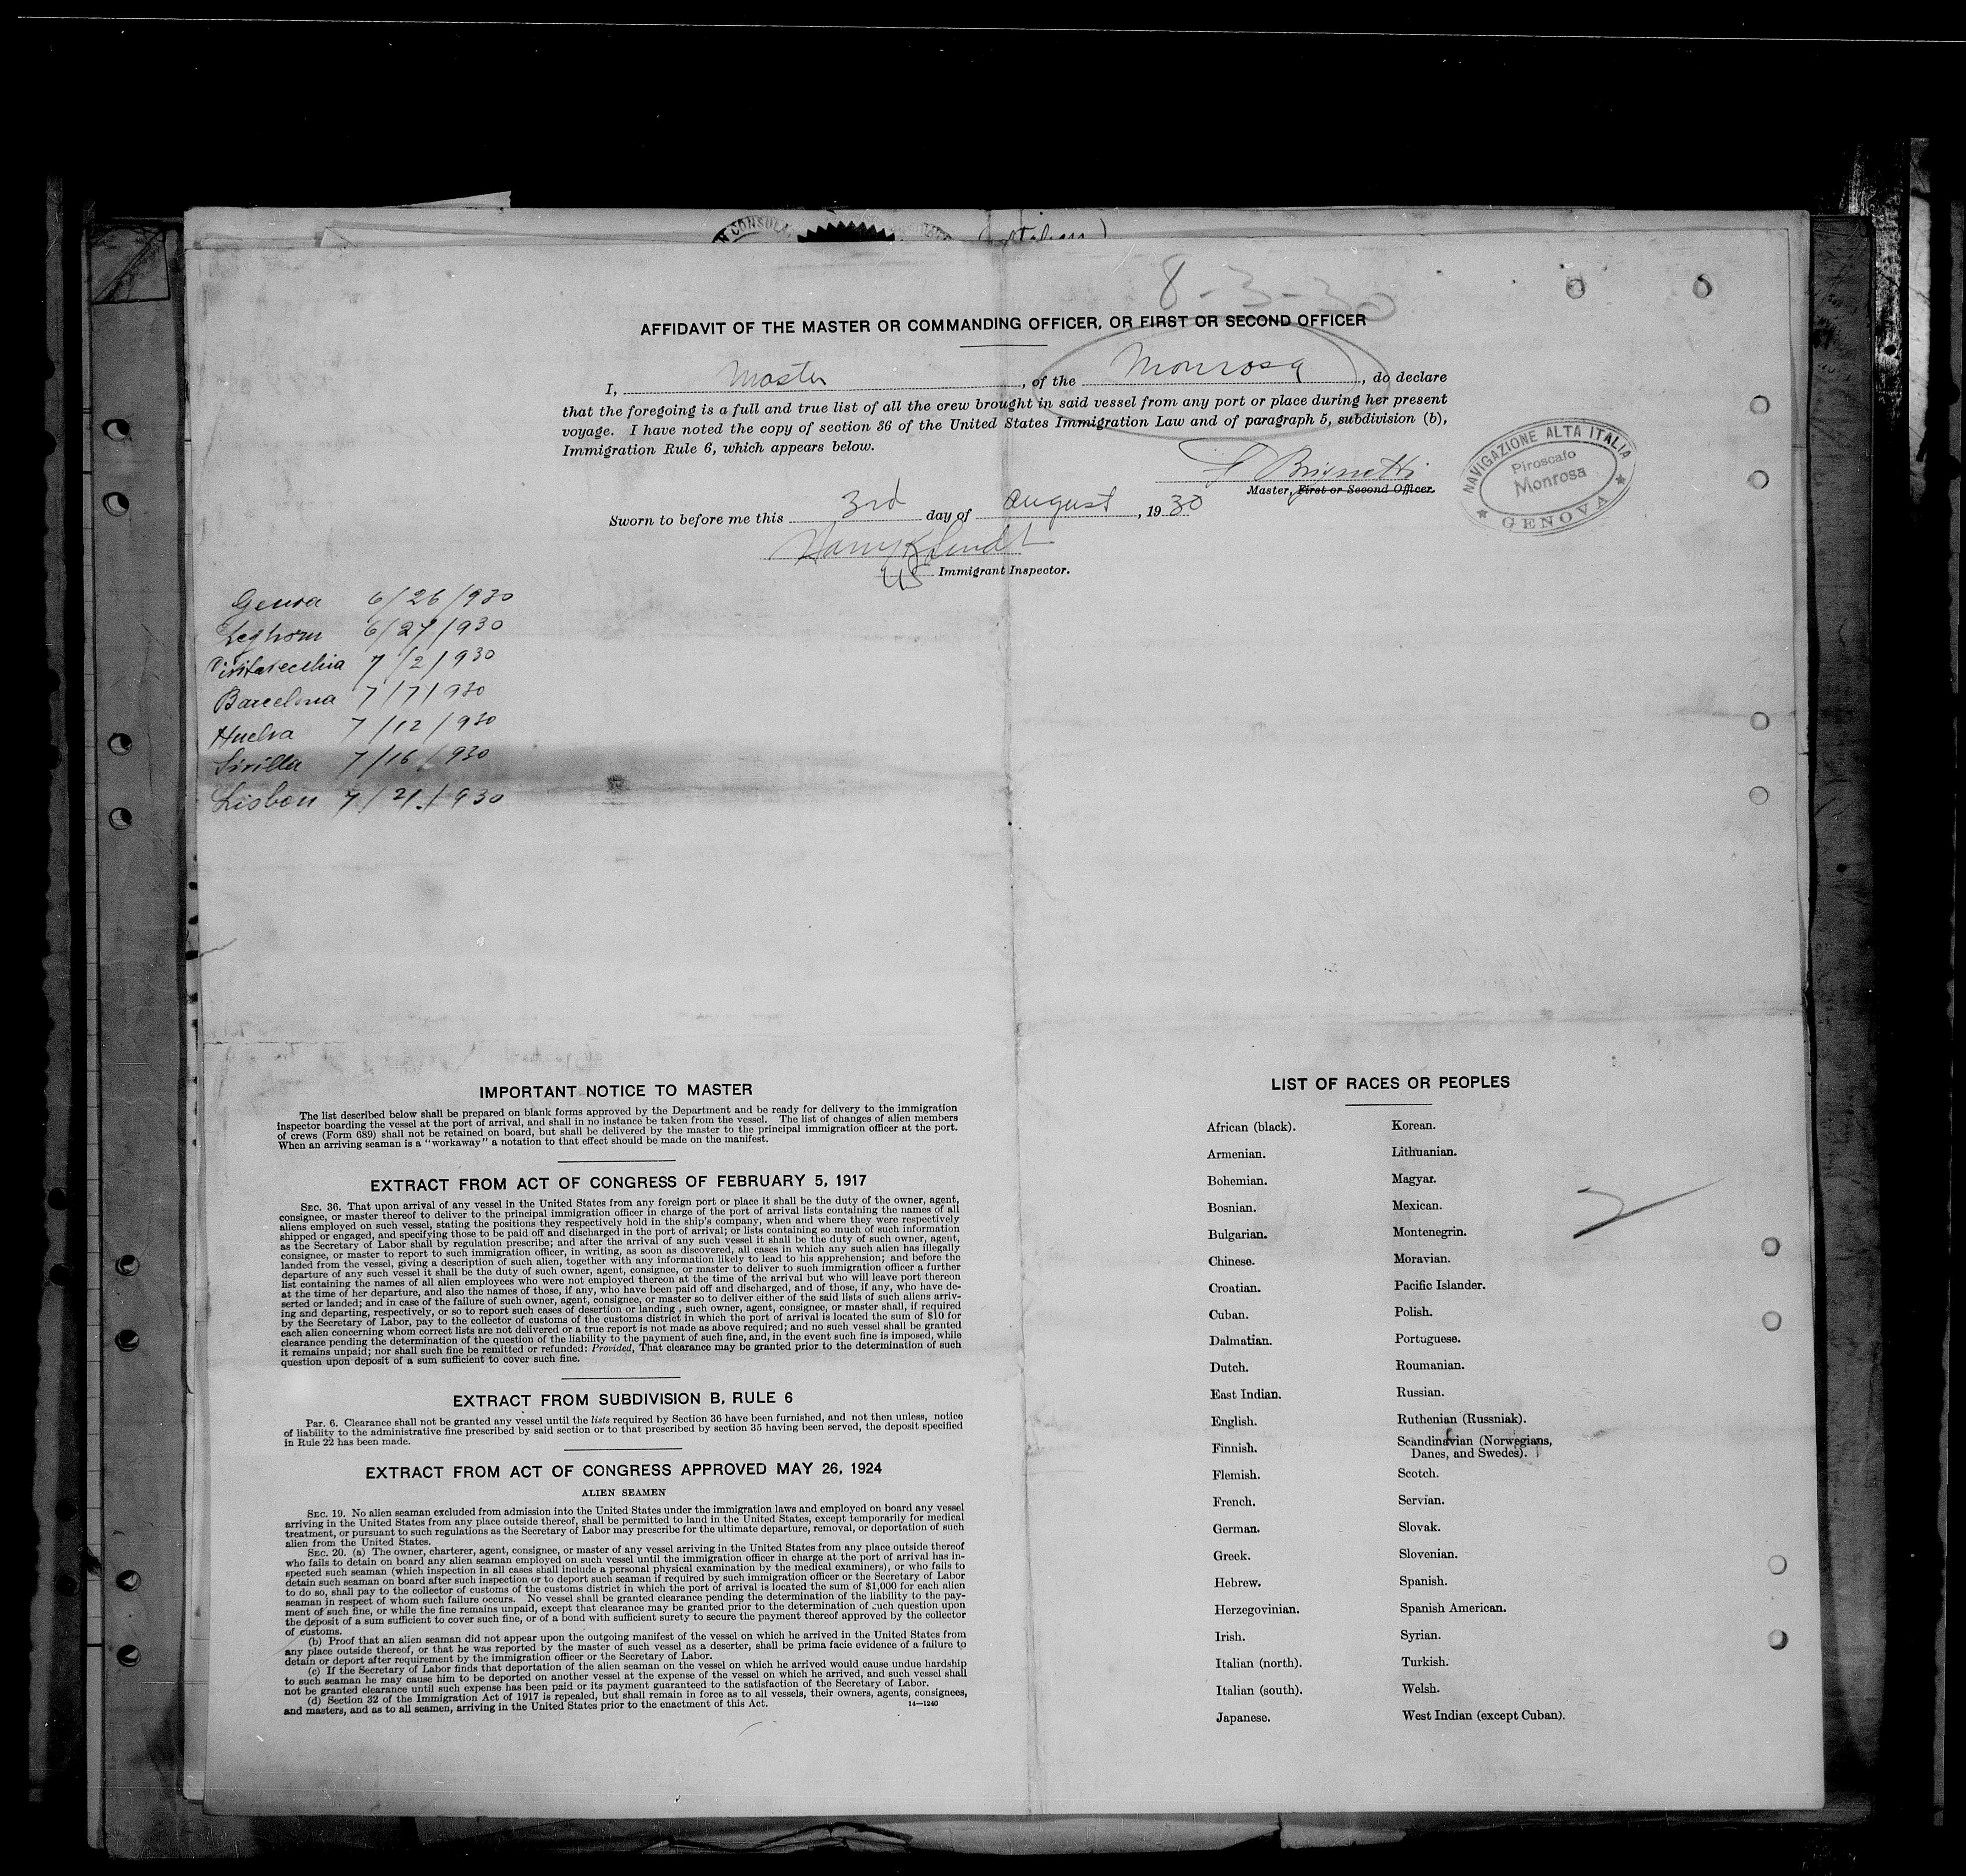 N CONSUL
8-3-30
AFFIDAVIT OF THE MASTER OR COMMANDING OFFICER, OR FIRST OR SECOND OFFICER
I, Master, of the Monrosa, do declare
that the foregoing is a full and true list of all the crew brought in said vessel from any port or place during her present
voyage. I have noted the copy of section 36 of the United States Immigration Law and of paragraph 5, subdivision (b),
Immigration Rule 6, which appears below.
Master, First or Second Officer.
NAVIGAZIONE ALTA ITALIA
Piroscafo
Monrosa
GENOVA
Sworn to before me this 3rd day of August, 1930
US Immigrant Inspector.
Genoa 6/26/930
Leghorn 6/27/930
Civitavecchia 7/2/930
Barcelona 7/7/930
Huelva 7/12/930
Sivilla 7/16/930
Lisbon 7/21/930
IMPORTANT NOTICE TO MASTER
The list described below shall be prepared on blank forms approved by the Department and be ready for delivery to the immigration
inspector boarding the vessel at the port of arrival, and shall in no instance be taken from the vessel. The list of changes of alien members
of crews (Form 689) shall not be retained on board, but shall be delivered by the master to the principal immigration officer at the port.
When an arriving seaman is a "workaway" a notation to that effect should be made on the manifest.
EXTRACT FROM ACT OF CONGRESS OF FEBRUARY 5, 1917
SEC. 36. That upon arrival of any vessel in the United States from any foreign port or place it shall be the duty of the owner, agent,
consignee, or master thereof to deliver to the principal immigration officer in charge of the port of arrival lists containing the names of all
aliens employed on such vessel, stating the positions they respectively hold in the ship's company, when and where they were respectively
shipped or engaged, and specifying those to be paid off and discharged in the port of arrival; or lists containing so much of such information
as the Secretary of Labor shall by regulation prescribe; and after the arrival of any such vessel it shall be the duty of such owner, agent,
consignee, or master to report to such immigration officer, in writing, as soon as discovered, all cases in which any such alien has illegally
landed from the vessel, giving a description of such alien, together with any information likely to lead to his apprehension; and before the
departure of any such vessel it shall be the duty of such owner, agent, consignee, or master to deliver to such immigration officer a further
list containing the names of all alien employees who were not employed thereon at the time of the arrival but who will leave port thereon
at the time of her departure, and also the names of those, if any, who have been paid off and discharged, and of those, if any, who have de-
serted or landed; and in case of the failure of such owner, agent, consignee, or master so to deliver either of the said lists of such aliens arriv-
ing and departing, respectively, or so to report such cases of desertion or landing , such owner, agent, consignee, or master shall, if required
by the Secretary of Labor, pay to the collector of customs of the customs district in which the port of arrival is located the sum of $10 for
each alien concerning whom correct lists are not delivered or a true report is not made as above required; and no such vessel shall be granted
clearance pending the determination of the question of the liability to the payment of such fine, and, in the event such fine is imposed, while
it remains unpaid; nor shall such fine be remitted or refunded: Provided, That clearance may be granted prior to the determination of such
question upon deposit of a sum sufficient to cover such fine.
EXTRACT FROM SUBDIVISION B, RULE 6
Par. 6. Clearance shall not be granted any vessel until the lists required by Section 36 have been furnished, and not then unless, notice
of liability to the administrative fine prescribed by said section or to that prescribed by section 35 having been served, the deposit specified
in Rule 22 has been made.
EXTRACT FROM ACT OF CONGRESS APPROVED MAY 26, 1924
ALIEN SEAMEN
SEC. 19. No alien seaman excluded from admission into the United States under the immigration laws and employed on board any vessel
arriving in the United States from any place outside thereof, shall be permitted to land in the United States, except temporarily for medical
treatment, or pursuant to such regulations as the Secretary of Labor may prescribe for the ultimate departure, removal, or deportation of such
alien from the United States.
SEC. 20. (a) The owner, charterer, agent, consignee, or master of any vessel arriving in the United States from any place outside thereof
who fails to detain on board any alien seaman employed on such vessel until the immigration officer in charge at the port of arrival has in-
spected such seaman (which inspection in all cases shall include a personal physical examination by the medical examiners), or who fails to
detain such seaman on board after such inspection or to deport such seaman if required by such immigration officer or the Secretary of Labor
to do so, shall pay to the collector of customs of the customs district in which the port of arrival is located the sum of $1,000 for each alien
seaman in respect of whom such failure occurs. No vessel shall be granted clearance pending the determination of the liability to the pay-
ment of such fine, or while the fine remains unpaid, except that clearance may be granted prior to the determination of such question upon
the deposit of a sum sufficient to cover such fine, or of a bond with sufficient surety to secure the payment thereof approved by the collector
of customs.
(b) Proof that an alien seaman did not appear upon the outgoing manifest of the vessel on which he arrived in the United States from
any place outside thereof, or that he was reported by the master of such vessel as a deserter, shall be prima facie evidence of a failure to
detain or deport after requirement by the immigration officer or the Secretary of Labor.
(c) If the Secretary of Labor finds that deportation of the alien seaman on the vessel on which he arrived would cause undue hardship
to such seaman he may cause him to be deported on another vessel at the expense of the vessel on which he arrived, and such vessel shall
not be granted clearance until such expense has been paid or its payment guaranteed to the satisfaction of the Secretary of Labor.
(d) Section 32 of the Immigration Act of 1917 is repealed, but shall remain in force as to all vessels, their owners, agents, consignees,
and masters, and as to all seamen, arriving in the United States prior to the enactment of this Act. 14—1240
LIST OF RACES OR PEOPLES
African (black).
Armenian.
Bohemian.
Bosnian.
Bulgarian.
Chinese.
Croatian.
Cuban.
Dalmatian.
Dutch.
East Indian.
English.
Finnish.
Flemish.
French.
German.
Greek.
Hebrew.
Herzegovinian.
Irish.
Italian (north).
Italian (south).
Japanese.
Korean.
Lithuanian.
Magyar.
Mexican.
Montenegrin.
Moravian.
Pacific Islander.
Polish.
Portuguese.
Roumanian.
Russian.
Ruthenian (Russniak).
Scandinavian (Norwegians,
Danes, and Swedes).
Scotch.
Servian.
Slovak.
Slovenian.
Spanish.
Spanish American.
Syrian.
Turkish.
Welsh.
West Indian (except Cuban).